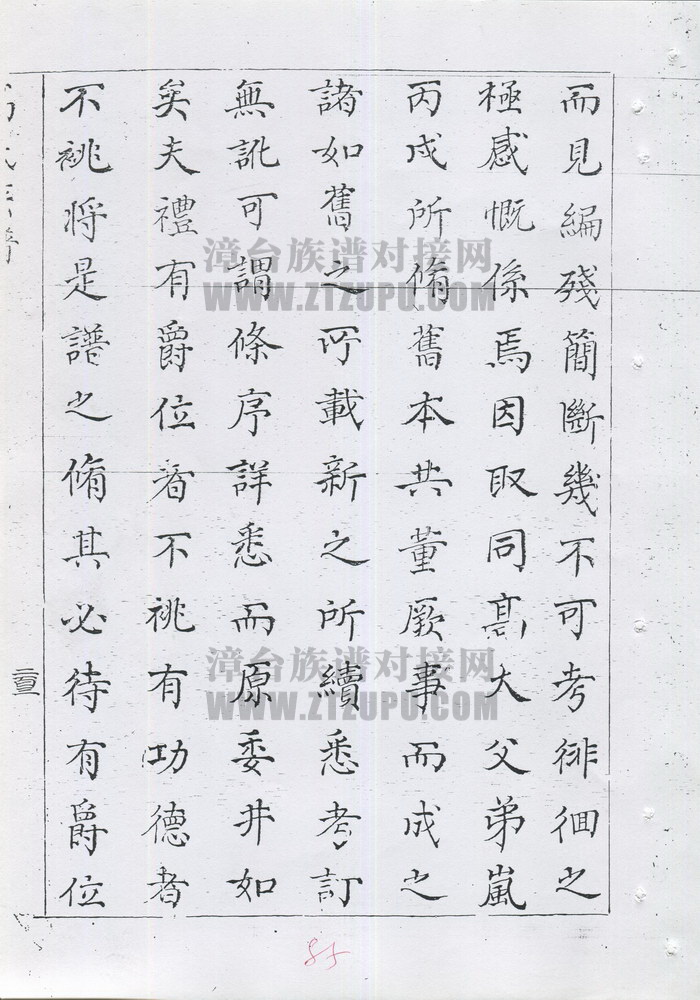 而見編殘簡斷幾不可考徘徊之
極感慨係焉因取同髙大父弟嵐
丙戍所脩舊本共董厥事而成之
諸如舊之所載新之所續悉考訂
無訛可謂條序詳悉而原委井如
矣夫禮有爵位者不祧有功德者
不祧将是譜之脩其必待有爵位
漳台族谱对接网
WWW.ZTZUPU.COM
漳台族谱对接网
WWW.ZTZUPU.COM
85